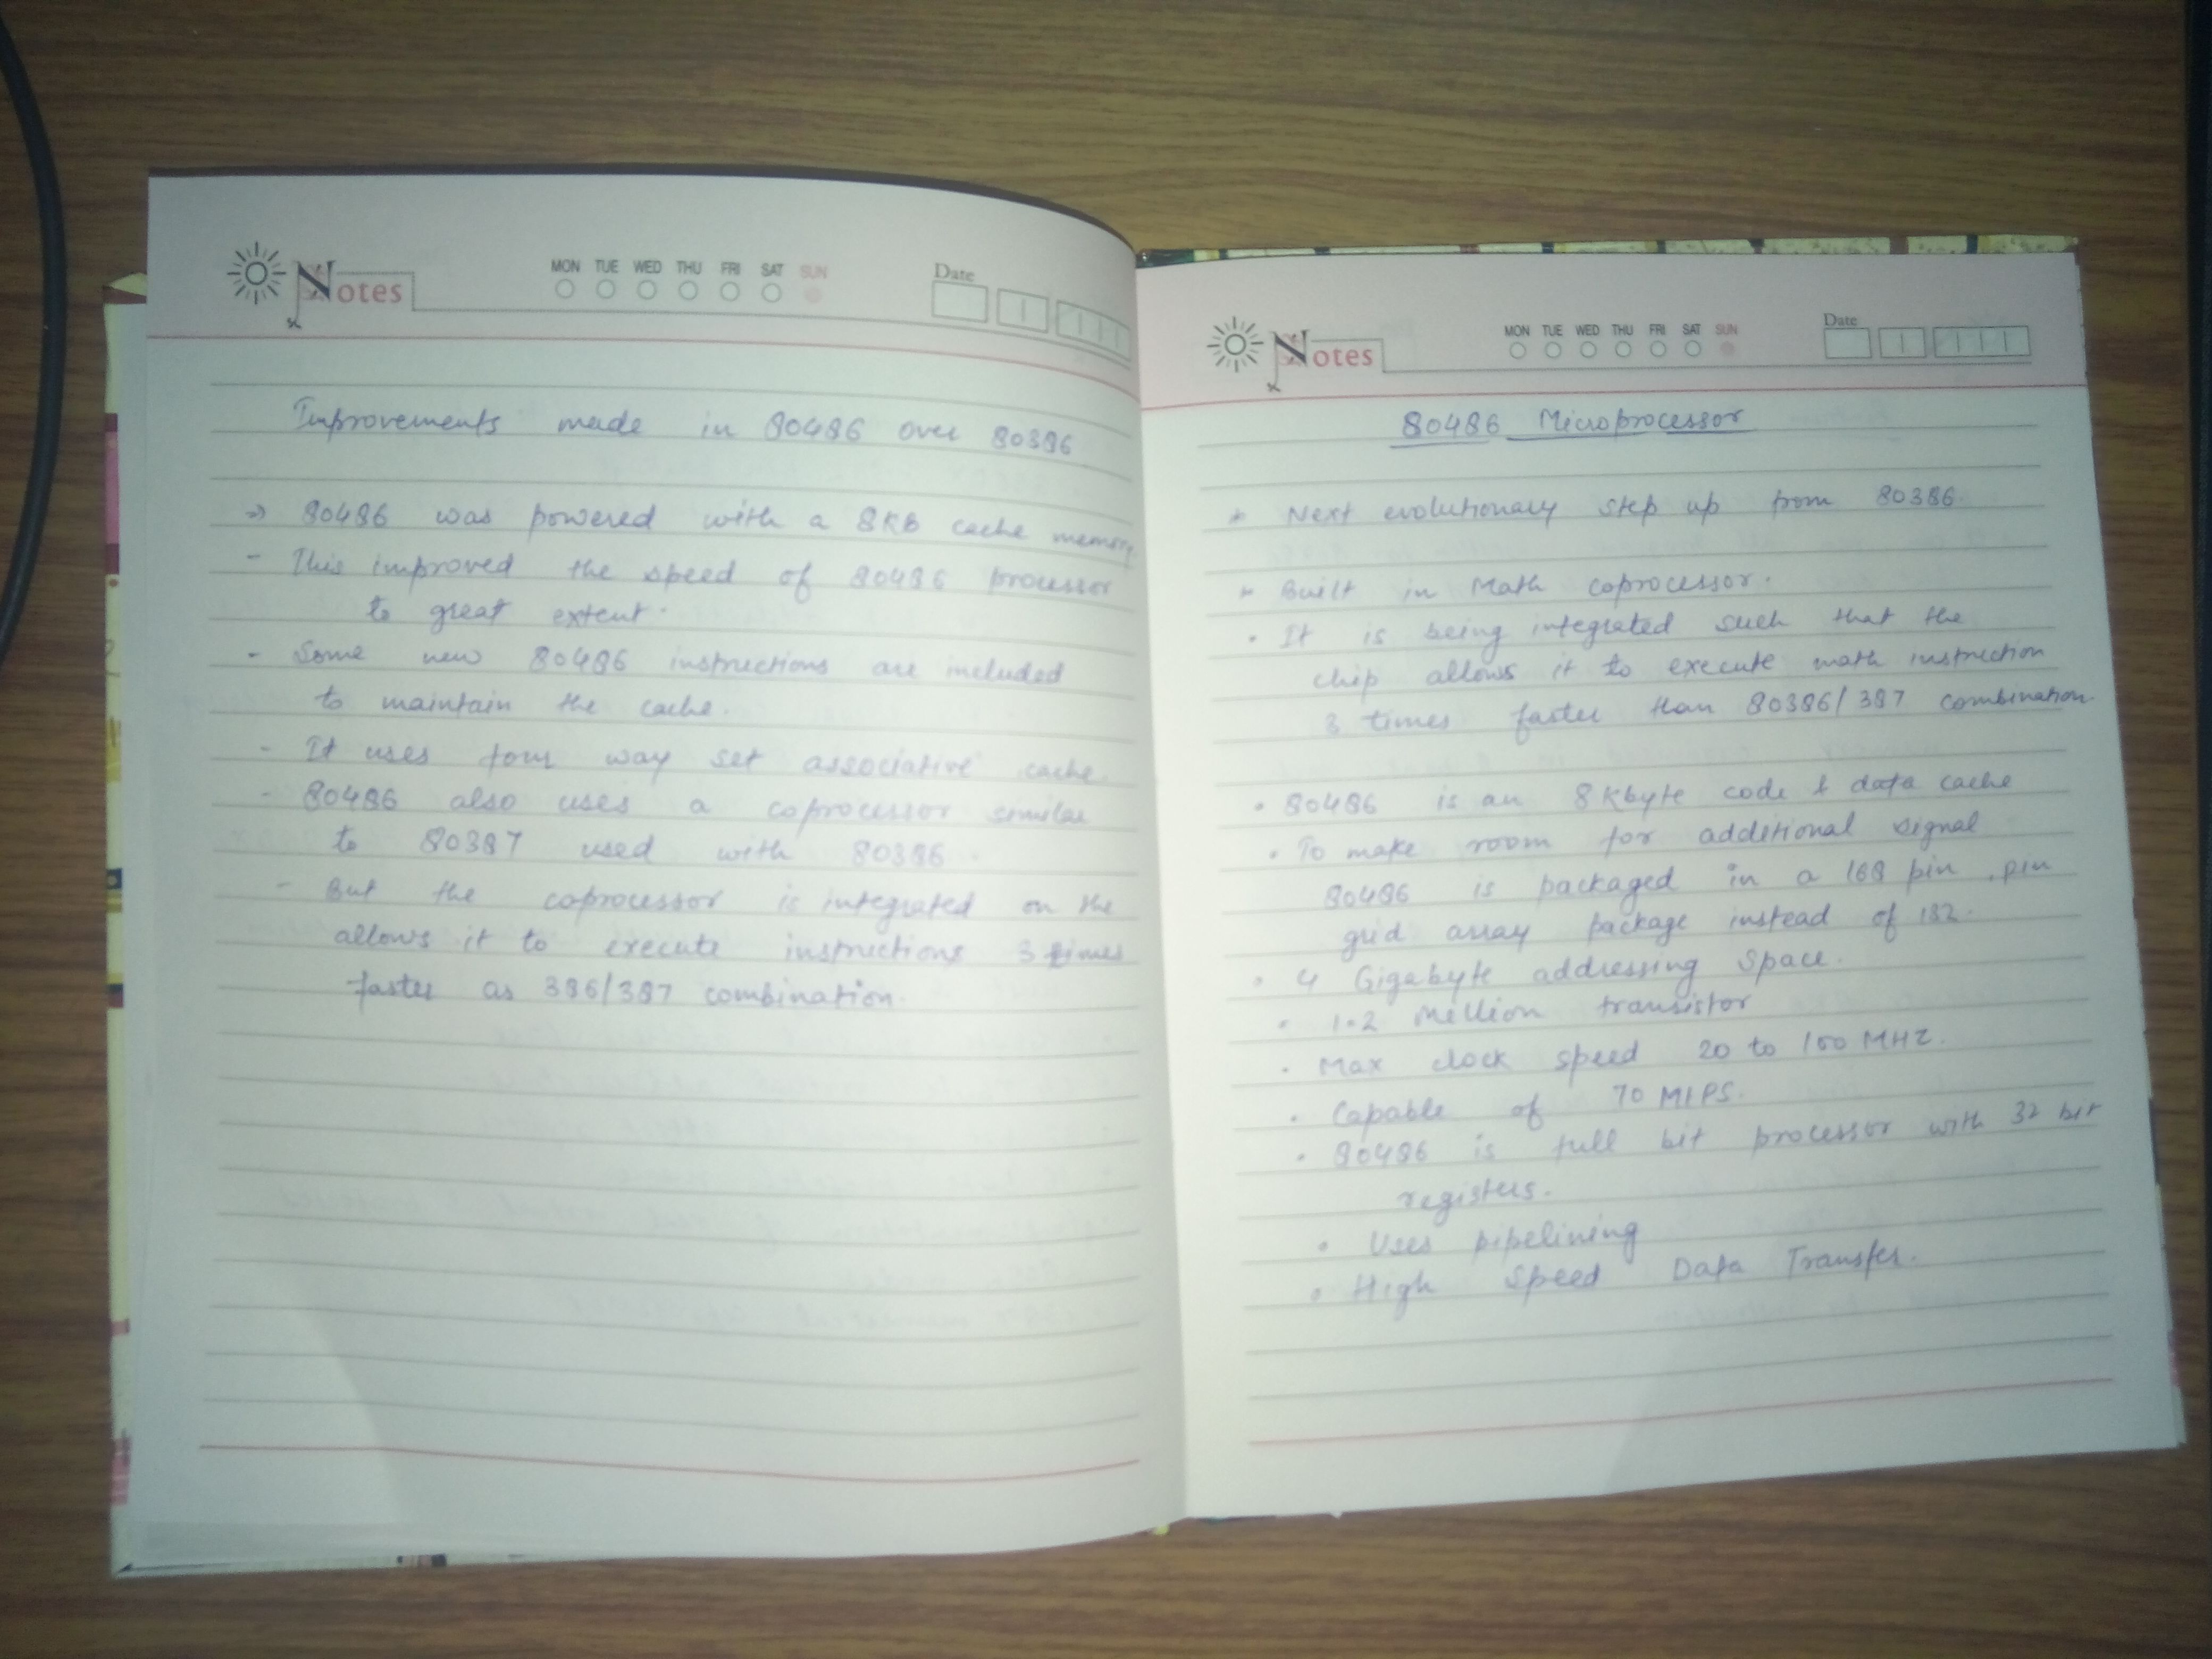 Notes
MON TUE WED THU FRI SAT SUN
Date
Improvements made in 80486 over 80386
=> 80486 was powered with a 8KB cache memory
- This improved the speed of 80486 processor
to great extent.
- Some new 80486 instructions are included
to maintain the cache.
- It uses four way set associative cache.
- 80486 also uses a coprocessor similar
to 80387 used with 80386.
- But the coprocessor is integrated on the
allows it to execute instructions 3 times
faster as 386/387 combination.
Notes
MON TUE WED THU FRI SAT SUN
Date
80486 Microprocessor
* Next evolutionary step up from 80386
* Built in Math coprocessor.
• It is being integrated such that the
chip allows it to execute math instruction
3 times faster than 80386/387 combination.
• 80486 is an 8 Kbyte code & data cache
• To make room for additional signal
80486 is packaged in a 168 pin, pin
grid array package instead of 132.
• 4 Gigabyte addressing space.
• 1.2 Million transistor
• Max clock speed 20 to 100 MHZ.
• Capable of 70 MIPS.
• 80486 is full bit processor with 32 bit
registers.
• Uses pipelining
• High Speed Data Transfer.